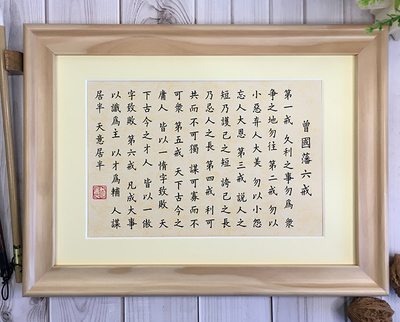 曾國藩六戒
第一戒 久利之事勿爲 衆
爭之地勿往 第二戒 勿以
小惡弃人大美 勿以小怨
忘人大恩 第三戒 說人之
短乃護己之短 誇己之長
乃忌人之長 第四戒 利可
共而不可獨 謀可寡而不
可衆 第五戒 天下古今之
庸人 皆以一惰字致敗 天
下古今之才人 皆以一傲
字致敗 第六戒 凡成大事
以識爲主 以才爲輔 人謀
居半 天意居半